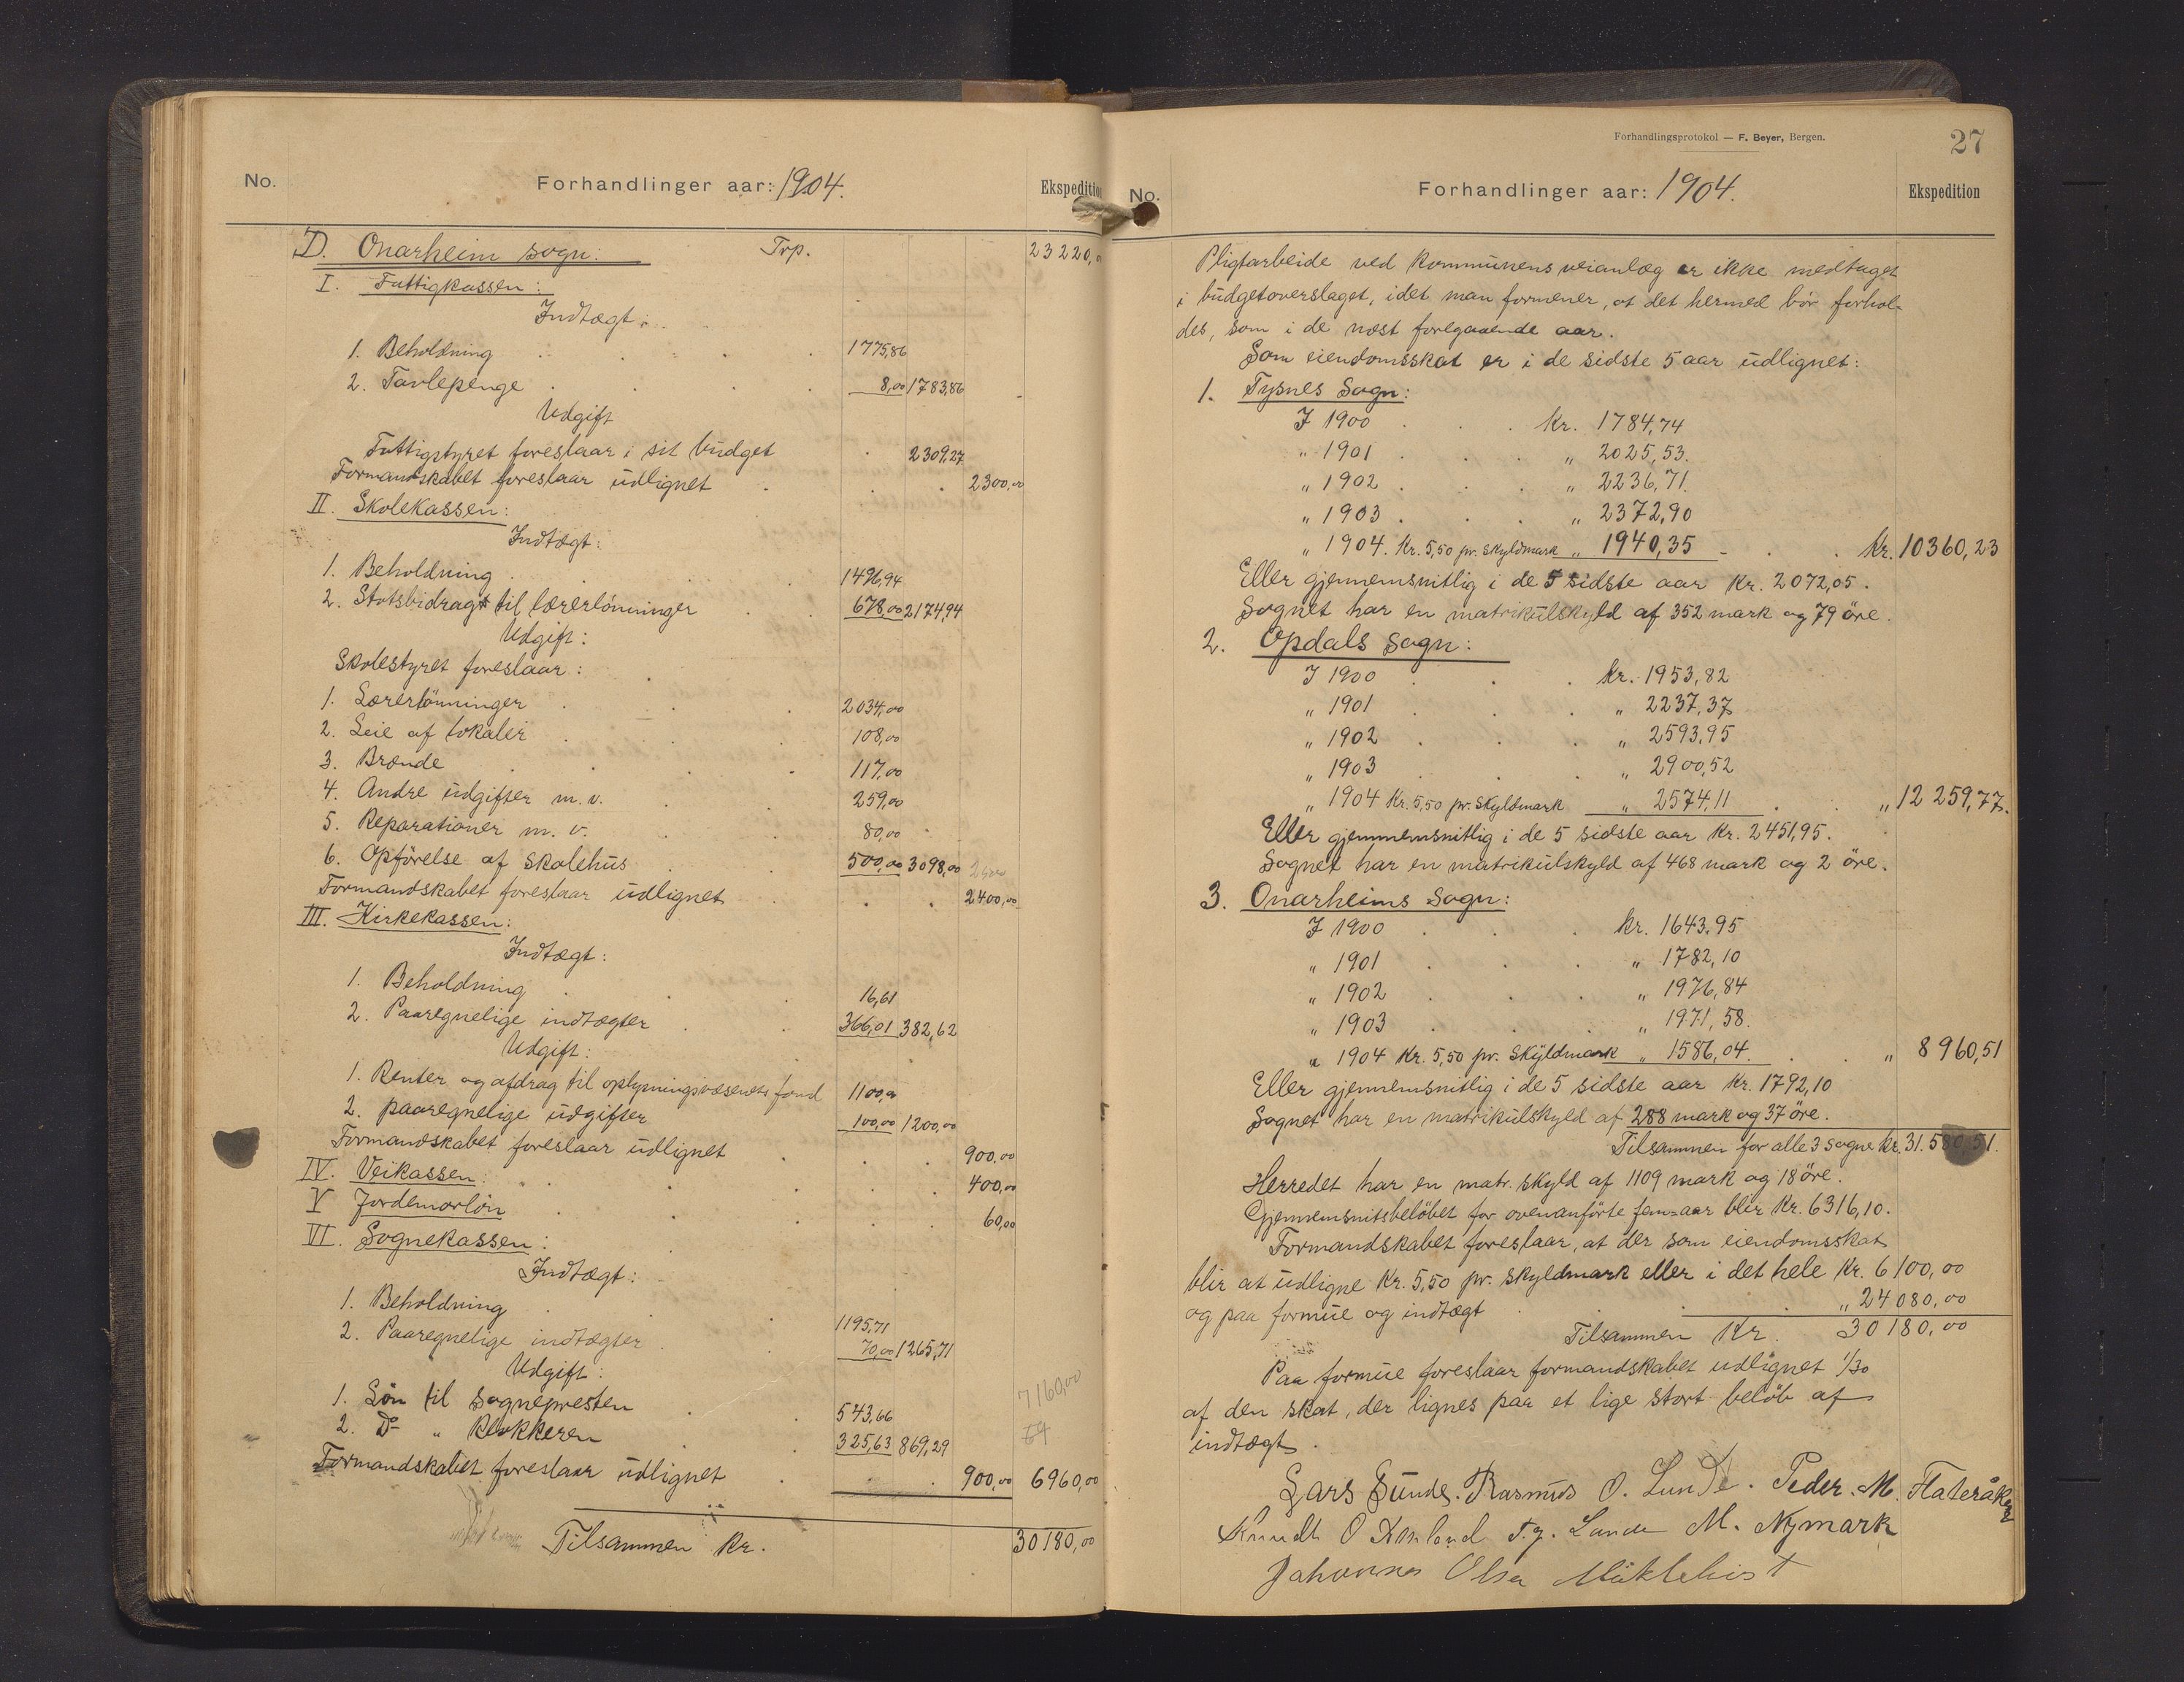 No. Forhandlinger aar: 1904. Ekspedition
D. Onarheim sogn: Trp. 23220,00
I. Fattigkassen:
Indtægt:
1. Beholdning 1775,86
2. Tavlepenge 8,00 1783,86
Udgift
Fattigstyret foreslaar i sit budget 2309,27
Formandskabet foreslaar udlignet 2300,00
II. Skolekassen:
Indtægt:
1. Beholdning 1496,94
2. Statsbidrag til lærerlönninger 678,00 2174,94
Udgift:
Skolestyret foreslaar:
1. Lærerlönninger 2034,00
2. Leie af lokaler 108,00
3. Brænde 117,00
4. Andre udgifter m.v. 259,00
5. Reparationer m. v. 80,00
6. Opförelse af skolehus 500,00 3098,00
Formandskabet foreslaar udlignet 2400,00
III. Kirkekassen:
Indtægt:
1. Beholdning 16,61
2. Paaregnelige indtægter 366,01 382,62
Udgift:
1. Renter og afdrag til oplysningsvæsenets fond 1100,00
2. paaregnelige udgifter 100,00 1200,00
Formandskabet foreslaar udlignet 900,00
IV. Veikassen: 400,00
V Jordemorlön 60,00
VI. Sognekassen:
Indtægt:
1. Beholdning 1195,71
2. Paaregnelige indtægter 70,00 1265,71
Udgift:
1. Lön til sognepresten 543,66 7160,00
2. Do " klokkeren 325,63 869,29 64
Formandskabet foreslaar udlignet 900,00 6960,00
Tilsammen kr. 30180,00
Forhandlingsprotokol — F. Beyer, Bergen. 27
No. Forhandlinger aar: 1904. Ekspedition
Pligtarbeide ved kommunens veianlæg er ikke medtaget
i budgetoverslaget, idet man formener, at det hermed bör forhol-
des, som i de næst foregaaende aar.
Som eiendomsskat er i de sidste 5 aar udlignet:
1. Tysnes Sogn:
I 1900 Kr. 1784,74
" 1901 " 2025,53.
" 1902 " 2236,71.
" 1903 " 2372,90
" 1904. Kr. 5,50 pr. skyldmark " 1940,35 Kr. 10360,23
Eller gjennemsnitlig i de 5 sidste aar Kr. 2072,05.
Sognet har en matrikulskyld af 352 mark og 79 öre.
2. Opdals Sogn:
I 1900 Kr. 1953,82
" 1901 " 2237,37
" 1902 " 2593,95
" 1903 " 2900,52
" 1904 Kr. 5,50 pr. skyldmark " 2574,11 " 12259,77.
Eller gjennemsnitlig i de 5 sidste aar Kr. 2451,95.
Sognet har en matrikulskyld af 468 mark og 2 öre.
3. Onarheims Sogn:
I 1900 Kr. 1643,95
" 1901 " 1782,10
" 1902 " 1976,84
" 1903 " 1971,58.
" 1904 Kr. 5,50 pr. Skyldmark " 1586,04. " 8960,51
Eller gjennemsnitlig i de 5 sidste aar Kr. 1792,10
Sognet har en matrikulskyld af 288 mark og 37 öre.
Tilsammen for alle 3 sogne kr. 31.580,51.
Herredet har en matr. skyld af 1109 mark og 18 öre.
Gjennemsnitsbelöbet for ovenanförte fem-aar blir Kr. 6316,10.
Formandskabet foreslaar, at der som eiendomsskat
blir at udligne Kr. 5,50 pr. skyldmark eller i det hele Kr. 6100,00
og paa formue og indtægt " 24080,00
Tilsammen Kr. 30180,00
Paa formue foreslaar formandskabet udlignet 1/30
af den skat, der lignes paa et lige stort belöb af
indtægt.
Lars Sunde. Rasmus O. Lunde. Peder. M. Flateråker
Knudt O T. J. Lande M. Nymark
Johannes Olsen